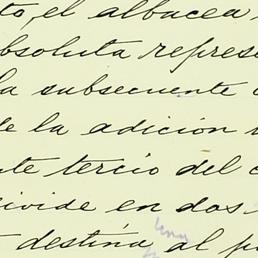 to, el albacea
absoluta repres
la subsecuente
de la adición
te tercio del
divide en dos
destina al